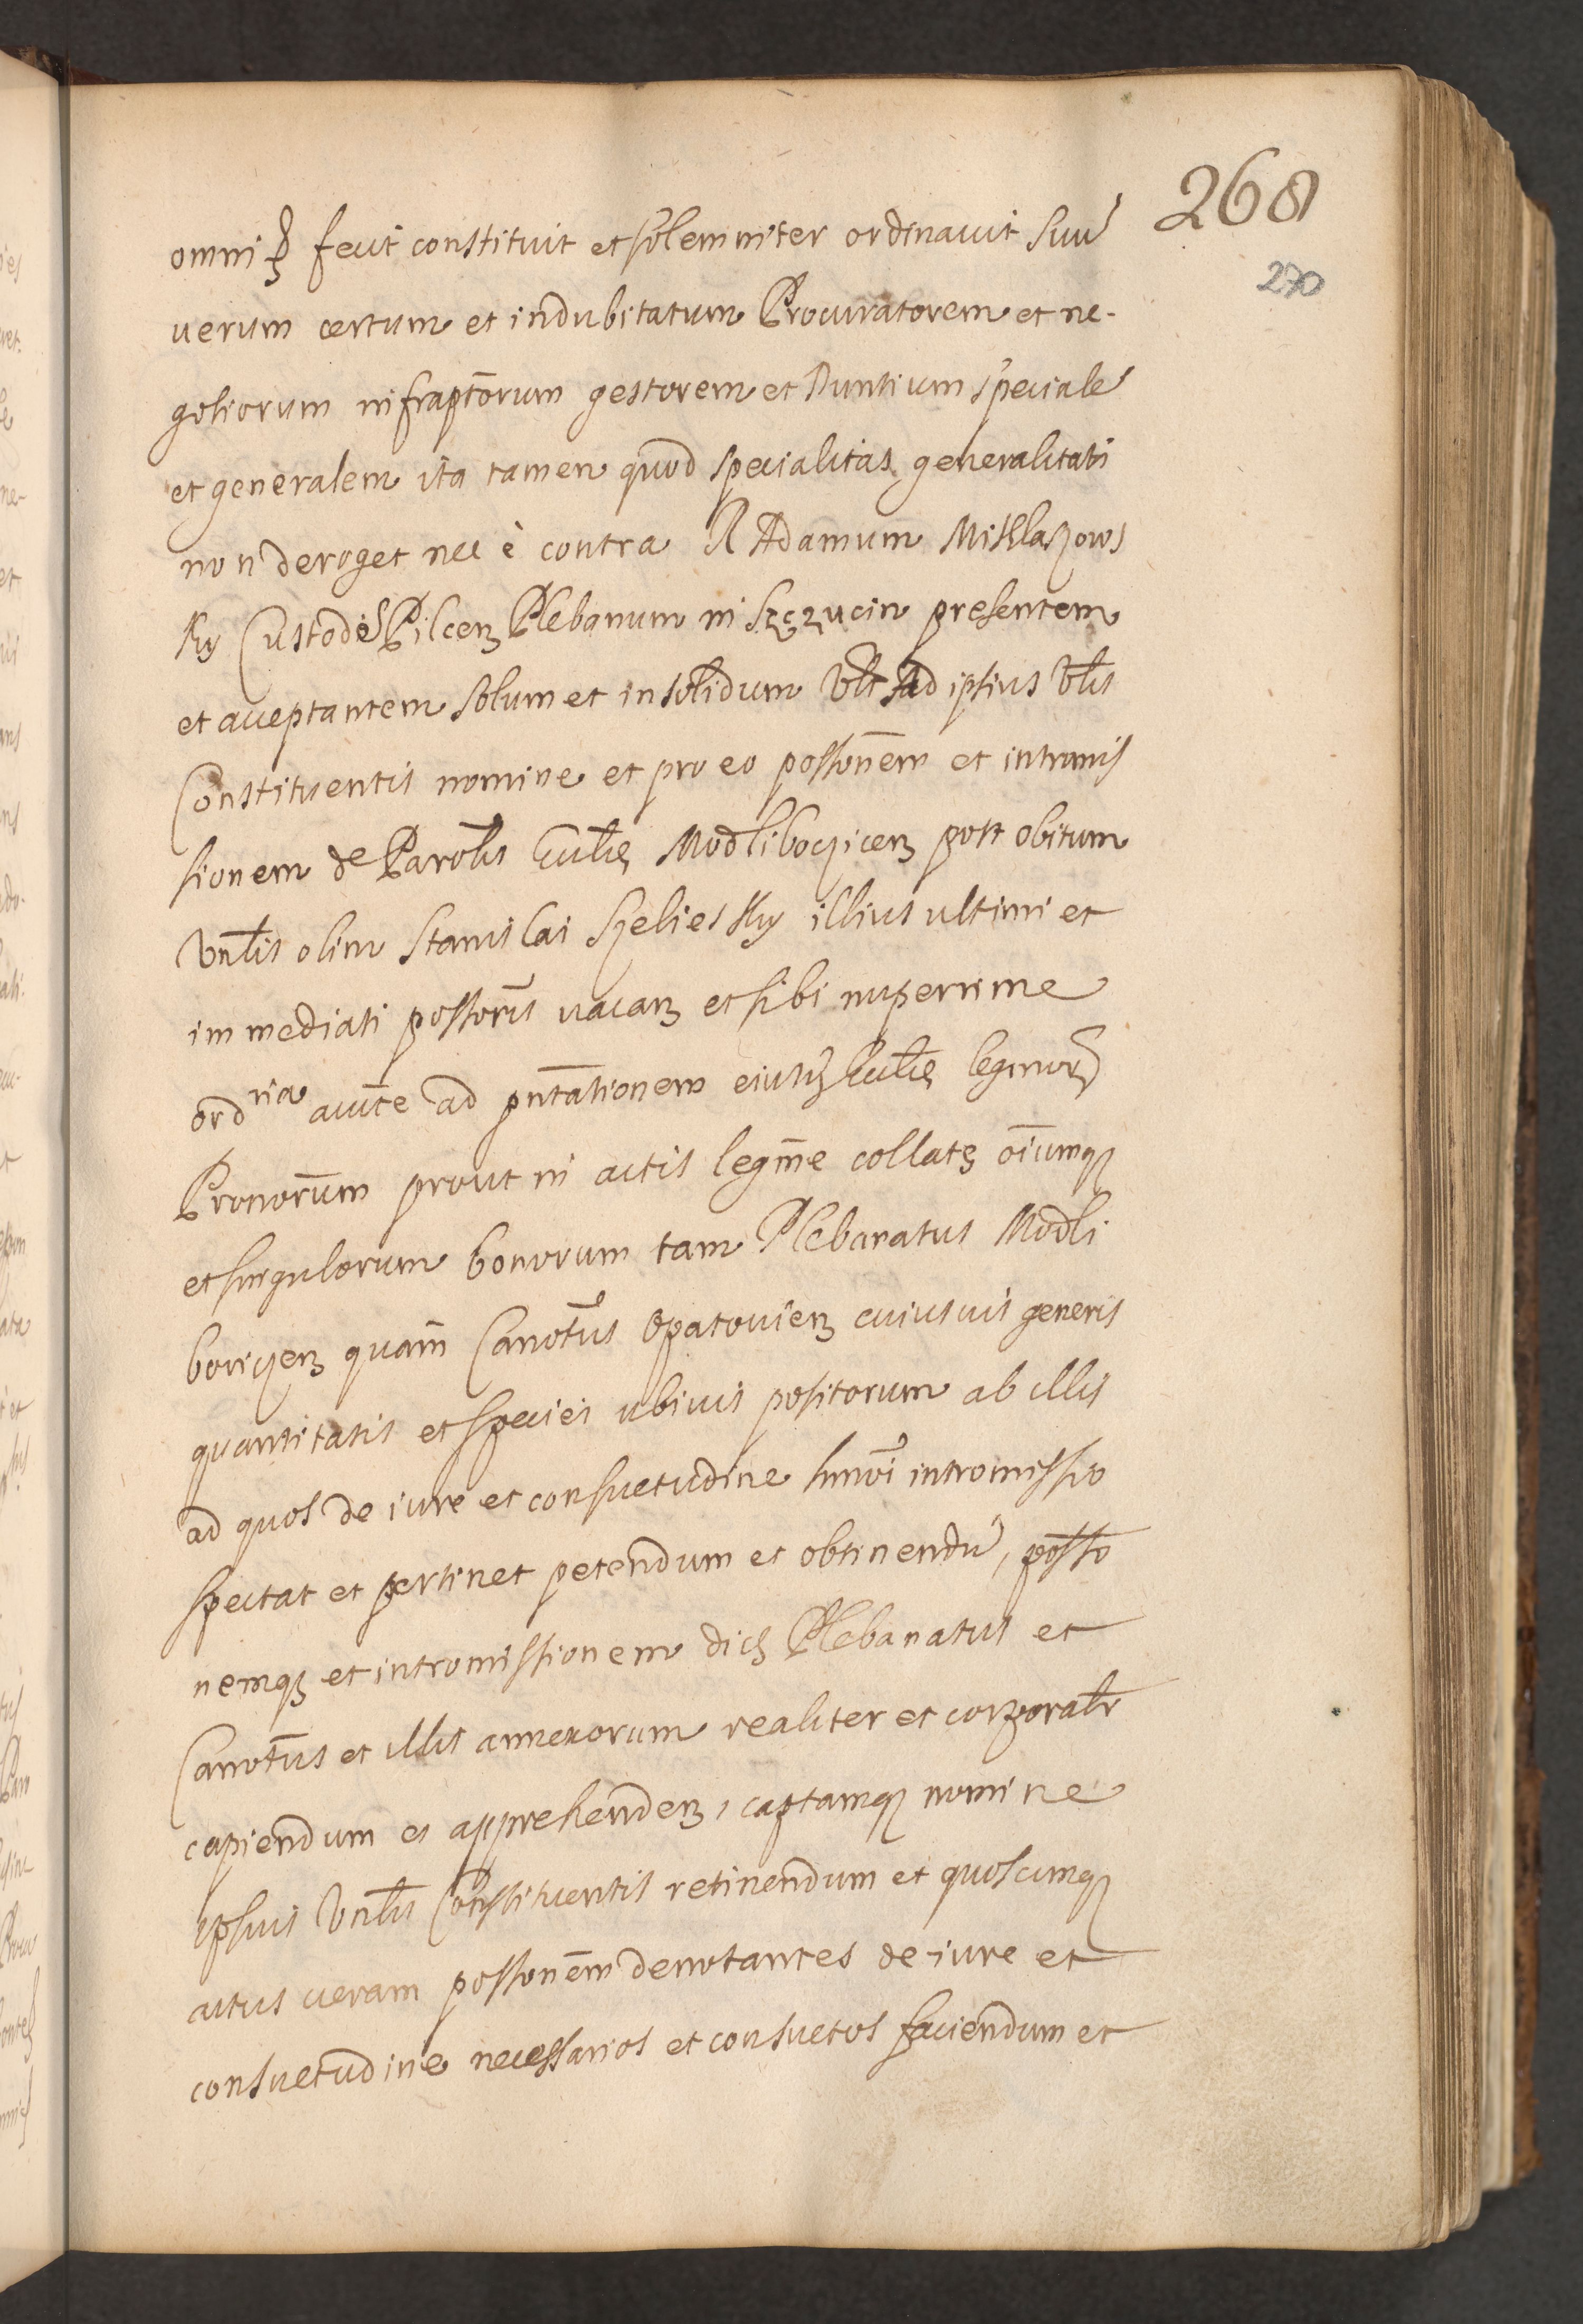 268
270
omni fecit constituit et solemniter ordinavit suū
uerum certum et indubitatum Procuratorem et ne-
gotiorum infraptōrum gestorem et Nuntium speciale
et generalem ita tamen quod specialitas generalitati
non deroget nec è contra R Adamum Miklaszows
ky Custodē Pilcen Plebanum in Szczucin presentem
et acceptantem solum et in solidum Vlt Ad ipsius Vlis
Constituentis nomine et pro eo possonēm et intromis
sionem de Parolis Ecclię Modlibozicen post obitum
Vnlis olim Stanislai Szeliesky illius ultimi et
immediati possoris vacan et sibi nuperrime
ordria aucte ad pntationem eiusd Ecclię legmor
Pronorum prout in actis legme collatę oiumq
et singulorum bonorum tam Plebanatus Modli
boricen quam Canotus Opatovien cuiusvis generis
quantitatis et speciei ubivis positorum ab illis
ad quos de iure et consuetudine hmoi intromissio
spectat et pertinet petendum et obtinendū, posso
nemq et intromissionem dict Plebanatus et
Canotus et illis annexorum realiter et corporalr
capiendum et apprehenden, captamq nomine
ipsius Vnlis Constituentis retinendum et quoscumq
actus veram possonēm denotantes de iure et
consuetudine necessarios et consuetos faciendum et